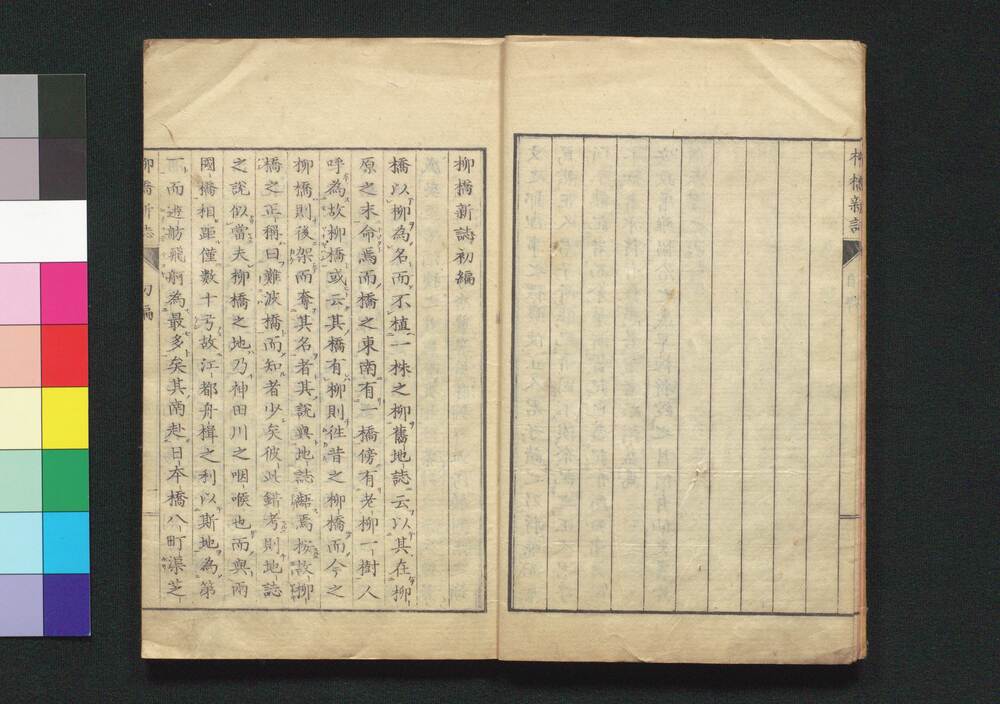 柳橋新誌
柳橋新誌初編
橋以柳為名而不植一株之柳舊地誌云以其在柳
原之末命焉而橋之東南有一橋傍有老柳一樹人
呼為故柳橋或云其橋有柳則徃昔之柳橋而今之
柳橋則後架而奪其名者其說與地誌齟焉按故柳
橋之正稱曰難波橋而知者少矣彼此錯考則地誌
之說似當夫柳橋之地乃神田川之咽喉也而與兩
國橋相距僅數十弓故江都舟楫之利以斯地為第
一而遊舫飛舸為最多矣其南赴日本橋八町渠芝
柳橋新誌 初編